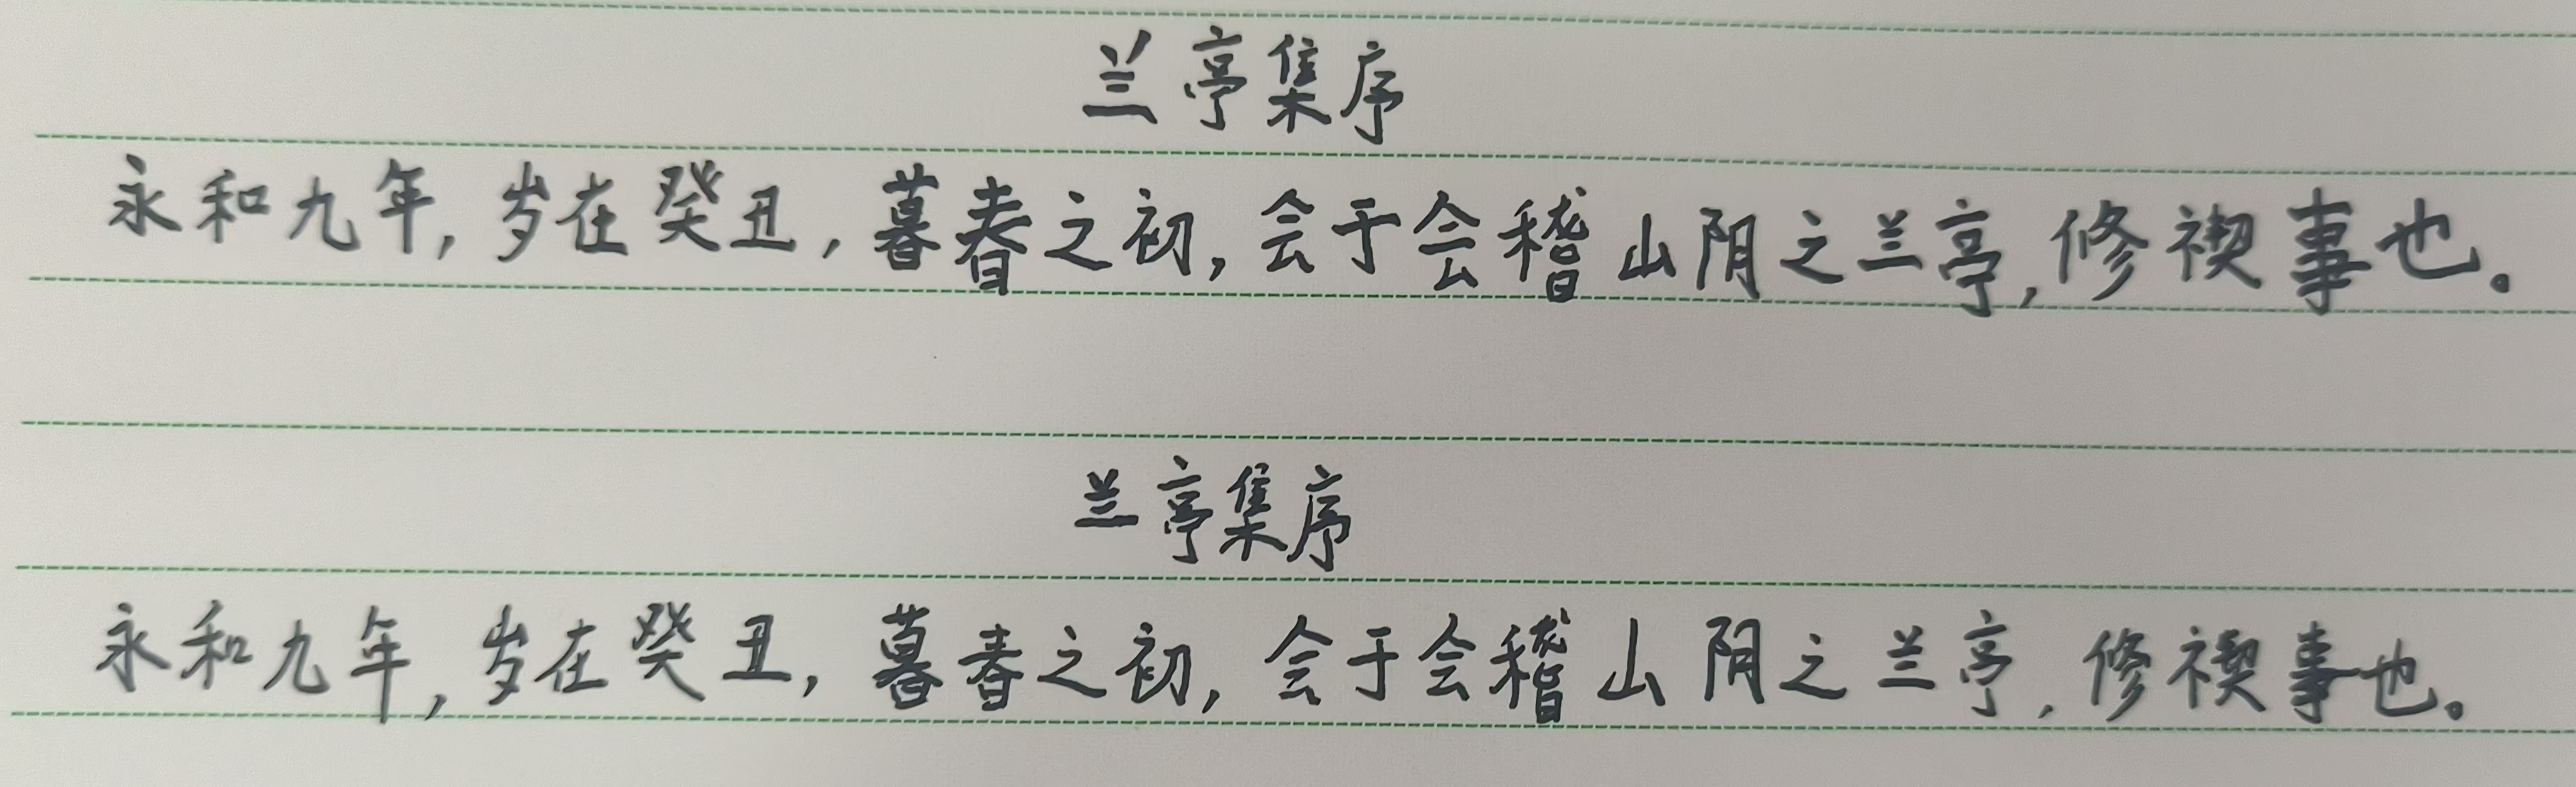 兰亭集序
永和九年,岁在癸丑,暮春之初,会于会稽山阴之兰亭,修禊事也。
兰亭集序
永和九年,岁在癸丑,暮春之初,会于会稽山阴之兰亭,修禊事也。